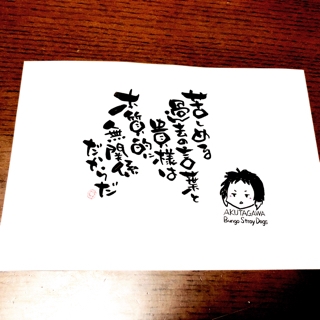 苦しめる
過去の言葉と
貴様は
本質的に
無関係
だからだ
AKUTAGAWA
Bungo Stray Dogs